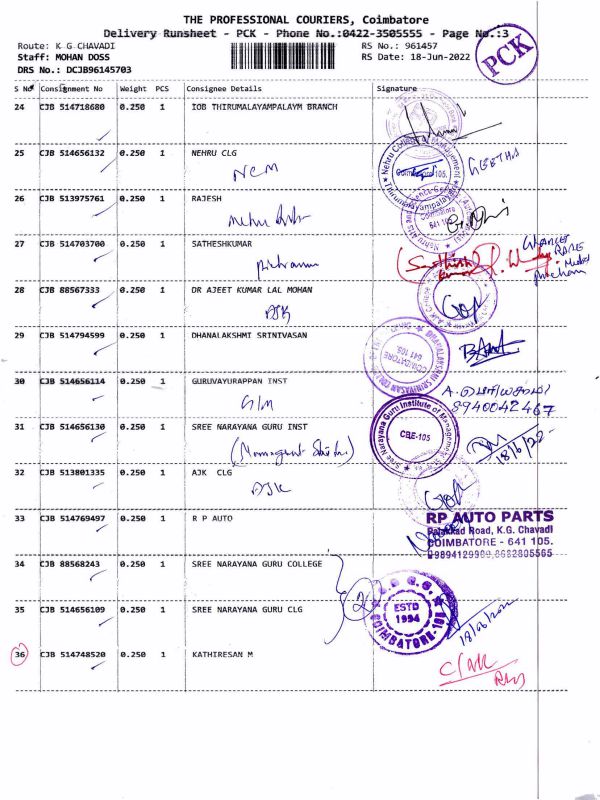 THE PROFESSIONAL COURIERS, Coimbatore
Delivery Runsheet - PCK - Phone No.:0422-3505555 - Page No.:3
Route: K G CHAVADI
RS No.: 961457
Staff: MOHAN DOSS
RS Date: 18-Jun-2022
DRS No.: DCJB96145703
PCK
S No Consignment No Weight PCS Consignee Details Signature
24 CJB 514718680 0.250 1 IOB THIRUMALAYAMPALAYM BRANCH
25 CJB 514656132 0.250 1 NEHRU CLG
NCM
Nehru College of Management
Coimbatore 105.
Thirumalayampalayam
GEETHA
26 CJB 513975761 0.250 1 RAJESH
Coimbatore
641 105
27 CJB 514703700 0.250 1 SATHESHKUMAR
(Sathish
Kumar)
28 CJB 88567333 0.250 1 DR AJEET KUMAR LAL MOHAN
AJK
29 CJB 514794599 0.250 1 DHANALAKSHMI SRINTVASAN
COIMBATORE
641 105.
30 CJB 514656114 0.250 1 GURUVAYURAPPAN INST
GIM
8940042467
31 CJB 514656130 0.250 1 SREE NARAYANA GURU INST
Sree Narayana Guru Institute of Management
CBE-105
18/6/22
32 CJB 513801335 0.250 1 AJK CLG
AJK
33 CJB 514769497 0.250 1 R P AUTO
RP AUTO PARTS
Palakkad Road, K.G. Chavadi
COIMBATORE - 641 105.
34 CJB 88568243 0.250 1 SREE NARAYANA GURU COLLEGE
2
ESTD
1994
COIMBATORE-105
35 CJB 514656109 0.250 1 SREE NARAYANA GURU CLG
36 CJB 514748520 0.250 1 KATHIRESAN M